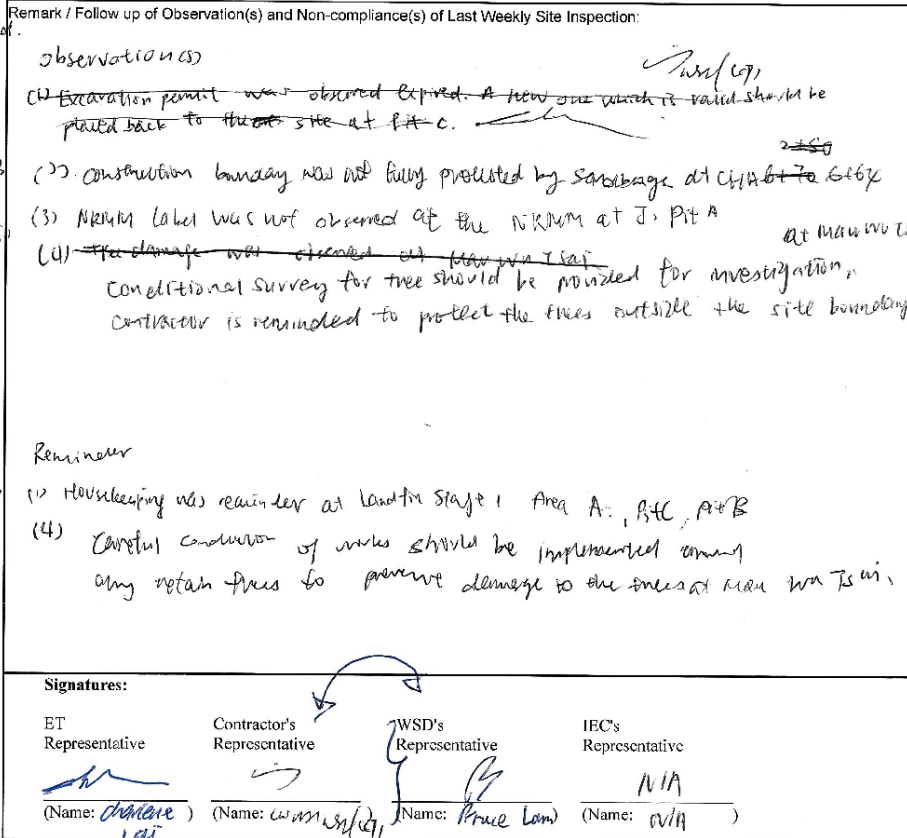 Remark / Follow up of Observation(s) and Non-compliance(s) of Last Weekly Site Inspection:
Observation(s)
(1) Excavation permit was observed expired. A new one which is valid should be
placed back to the site at Pit C.
(2) Construction boundary was not fully protected by sandbags at CHA
(3) NRMM Label was not observed at the NRMM at J. Pit A
(4) The damage was observed at Mau Wu Tsai
at Mau Wu
Conditional survey for tree should be provided for investigation,
Contractor is reminded to protect the trees outside the site boundary
Reminder
(1) Housekeeping was reminder at Landfin Stage 1 Area A, Pit C, Pit B
(4) Careful conduction of works should be implemented among
any retain trees to prevent damage to the trees at Mau Wu Tsai.
Signatures:
ET Contractor's WSD's IEC's
Representative Representative Representative Representative
N/A
(Name: Charlene ) (Name: (Name: Bruce Lam) (Name: N/A )
Lai